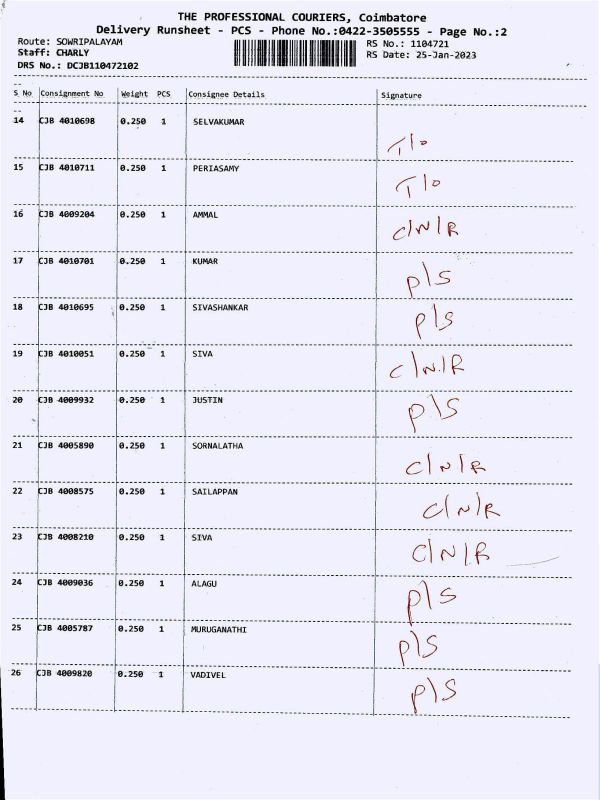 THE PROFESSIONAL COURIERS, Coimbatore
Delivery Runsheet - PCS - Phone No.:0422-3505555 - Page No.:2
Route: SOWRIPALAYAM
Staff: CHARLY
DRS No.: DCJB110472102
RS No.: 1104721
RS Date: 25-Jan-2023
S No Consignment No Weight PCS Consignee Details Signature
14 CJB 4010698 0.250 1 SELVAKUMAR T/o
15 CJB 4010711 0.250 1 PERIASAMY T/o
16 CJB 4009204 0.250 1 AMMAL C/N/R
17 CJB 4010701 0.250 1 KUMAR P\S
18 CJB 4010695 0.250 1 SIVASHANKAR P\S
19 CJB 4010051 0.250 1 SIVA C/N/R
20 CJB 4009932 0.250 1 JUSTIN P\S
21 CJB 4005890 0.250 1 SORNALATHA C/N/R
22 CJB 4008575 0.250 1 SAILAPPAN C/N/R
23 CJB 4008210 0.250 1 SIVA C/N/R
24 CJB 4009036 0.250 1 ALAGU P\S
25 CJB 4005787 0.250 1 MURUGANATHI P\S
26 CJB 4009820 0.250 1 VADIVEL P\S